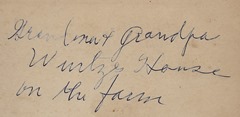 Grandma & Grandpa
Wurtzs House
on the farm